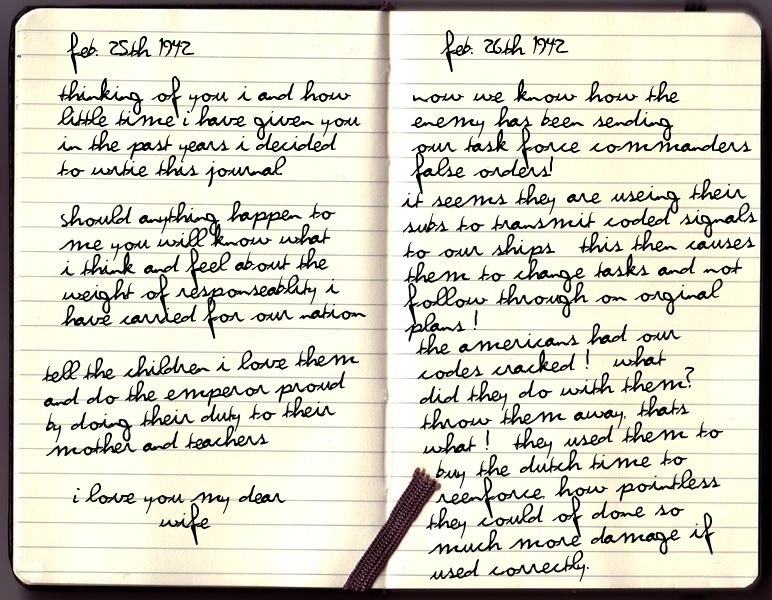 feb. 25th 1942
thinking of you i and how
little time i have given you
in the past years i decided
to urtie this journal
should anything happen to
me you will know what
i think and feel about the
weight of responseablity i
have carried for our nation
tell the children i love them
and do the emperor proud
by doing their duty to their
mother and teachers
i love you my dear
wife
feb. 26th 1942
now we know how the
enemy has been sending
our task force commanders
false orders!
it seems they are useing their
subs to transmit coded signals
to our ships this then causes
them to change tasks and not
follow through on orginal
plans!
the americans had our
codes cracked! what
did they do with them?
throw them away. thats
what! they used them to
buy the dutch time to
reenforce. how pointless
they could of done so
much more damage if
used correctly.